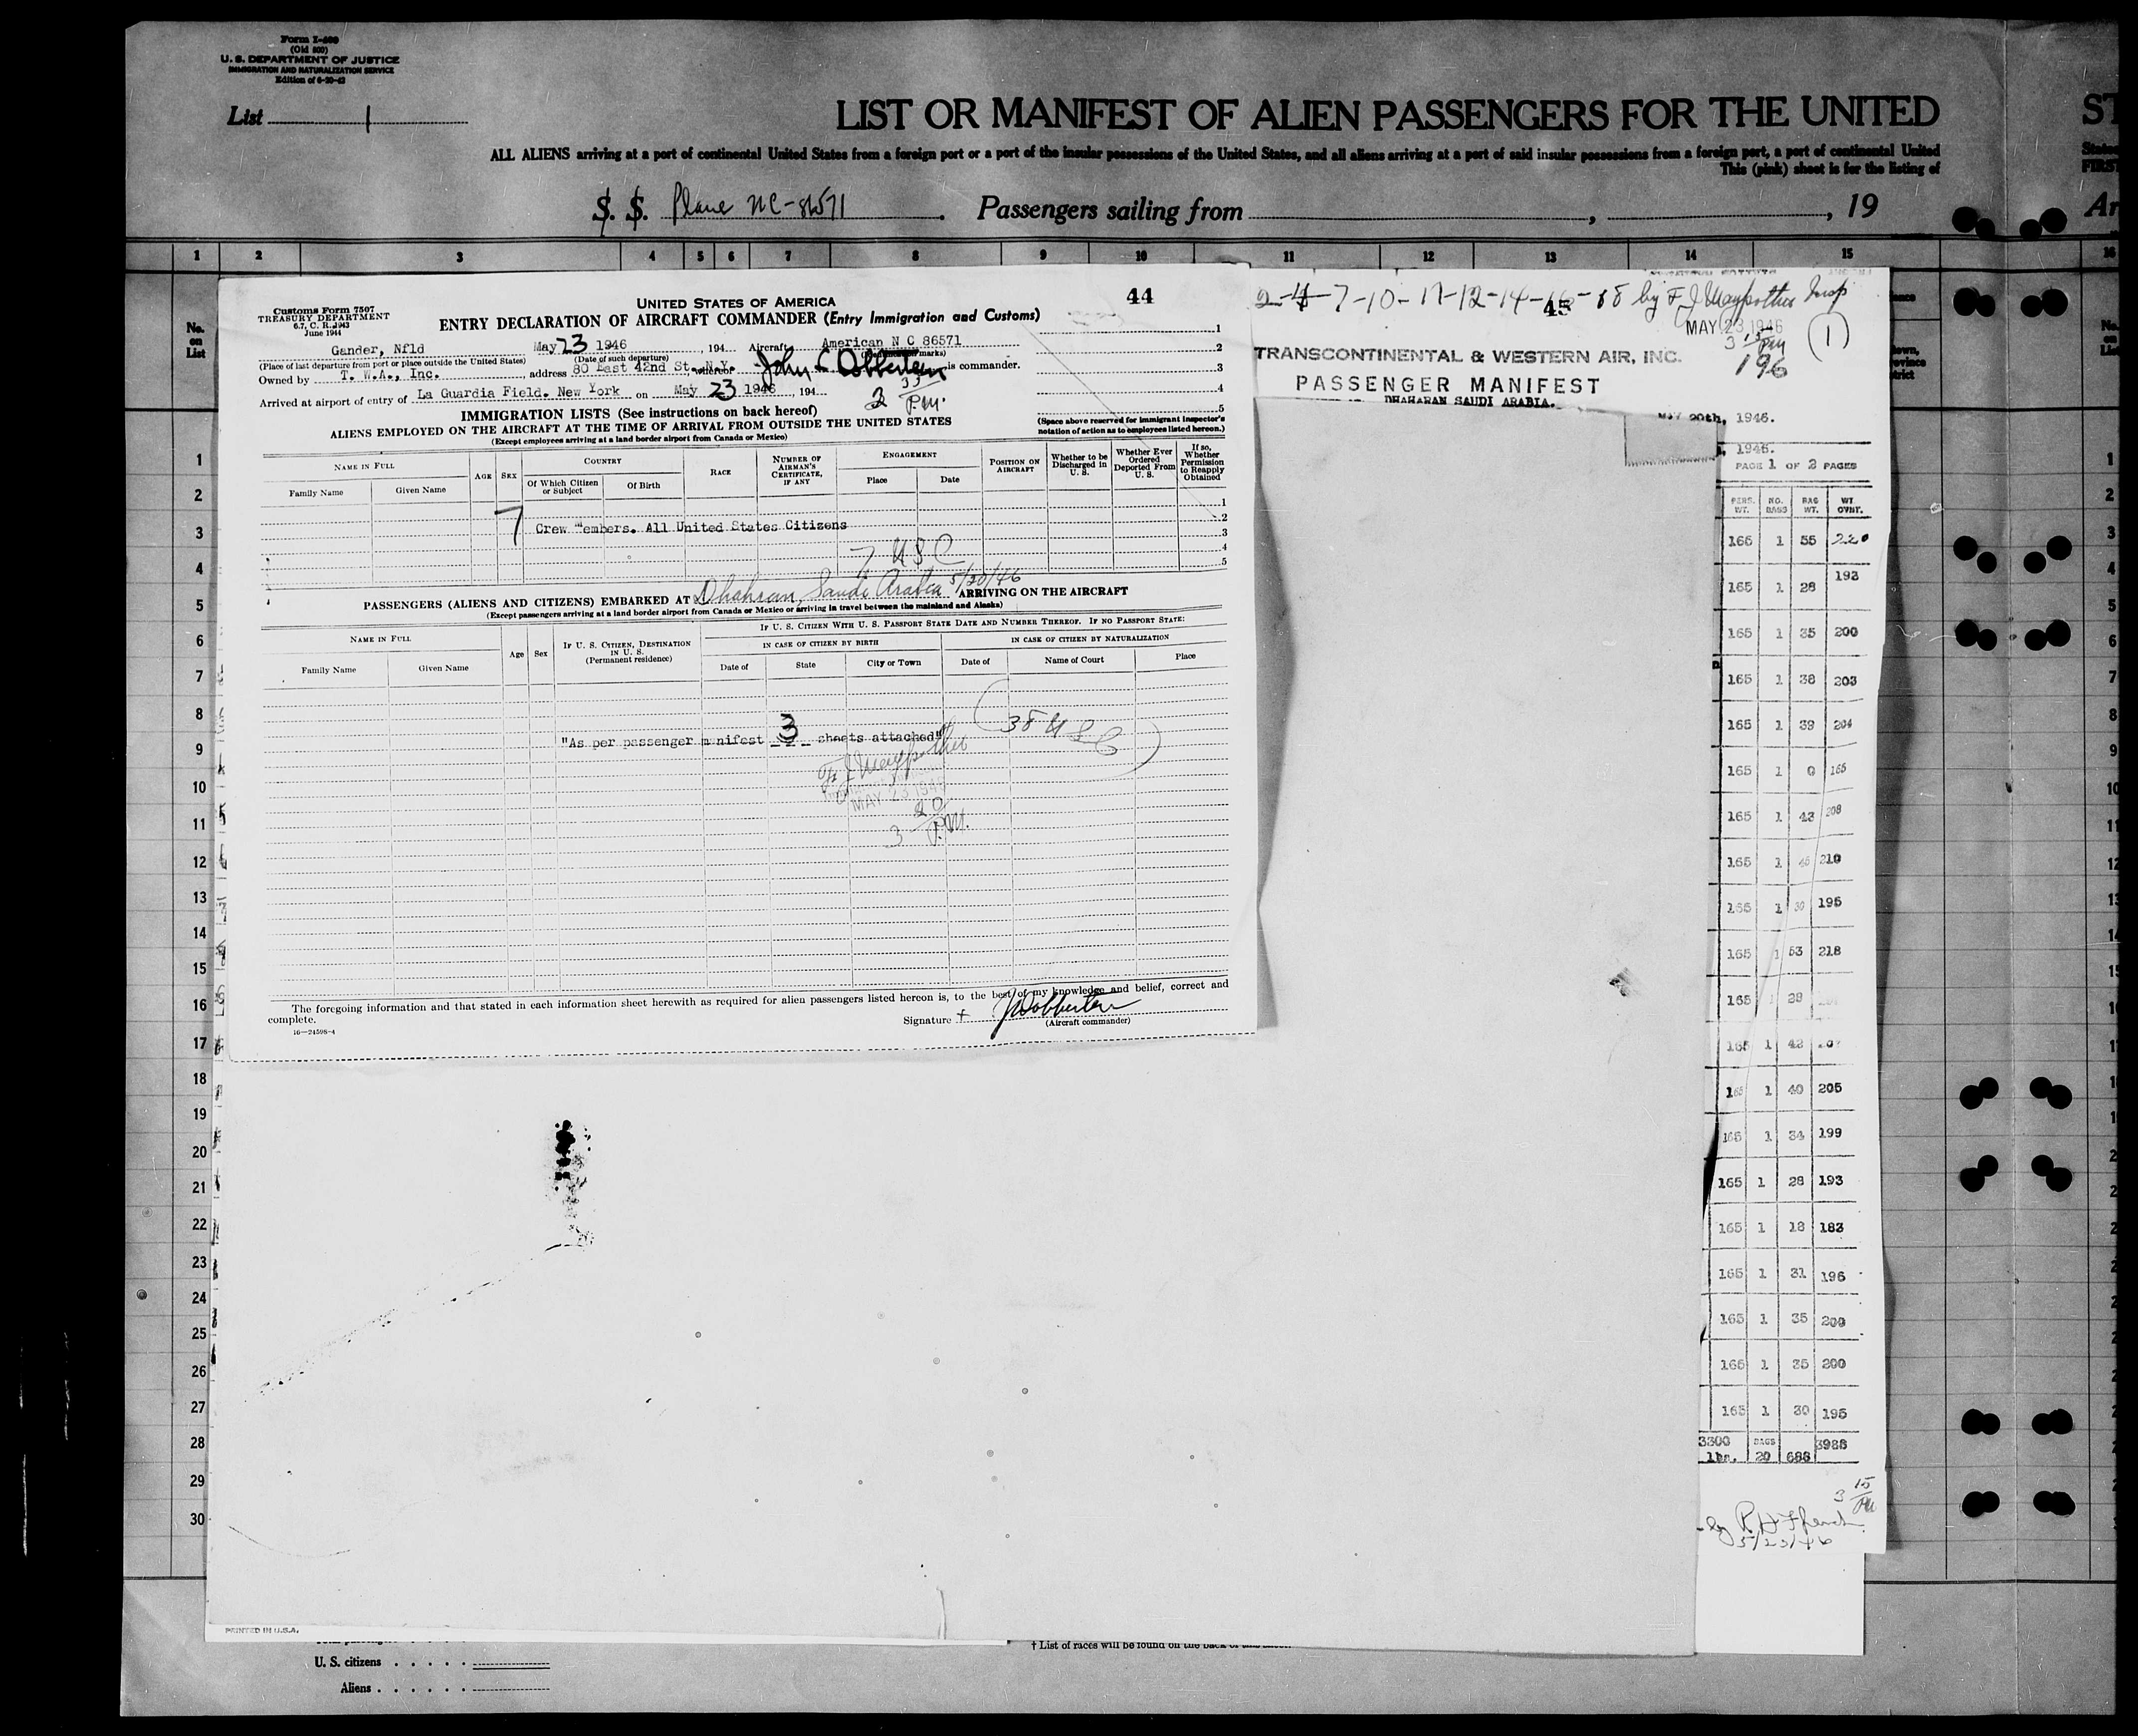 Form I-400
(Old 500)
U. S. DEPARTMENT OF JUSTICE
IMMIGRATION AND NATURALIZATION SERVICE
Edition of 6-30-43
List 1
LIST OR MANIFEST OF ALIEN PASSENGERS FOR THE UNITED
ALL ALIENS arriving at a port of continental United States from a foreign port or a port of the insular possessions of the United States, and all aliens arriving at a port of said insular possessions from a foreign port, a port of continental United
This (pink) sheet is for the listing of
S. S. Plane NC-86571. Passengers sailing from , , 19
1 2 3 4 5 6 7 8 9 10 11 12 13 14 15 16
No. on List
44
Customs Form 7507
TREASURY DEPARTMENT
6.7, C. R. 1943
June 1944
UNITED STATES OF AMERICA
ENTRY DECLARATION OF AIRCRAFT COMMANDER (Entry Immigration and Customs)
Gander, Nfld May 23 1946, 194 Aircraft American N C 86571
(Place of last departure from port or place outside the United States) (Date of such departure) marks)
Owned by T. W.A., Inc., address 80 East 42nd St., N.Y. whereof John C Obberten is commander.
Arrived at airport of entry of La Guardia Field. New York on May 23 1946, 194
2 35 P.M.
IMMIGRATION LISTS (See instructions on back hereof)
ALIENS EMPLOYED ON THE AIRCRAFT AT THE TIME OF ARRIVAL FROM OUTSIDE THE UNITED STATES
(Except employees arriving at a land border airport from Canada or Mexico)
1
2
3
4
5
(Space above reserved for immigrant inspector's notation of action as to employees listed hereon.)
NAME IN FULL
Family Name Given Name
AGE SEX
COUNTRY
Of Which Citizen or Subject Of Birth
RACE
NUMBER OF AIRMAN'S CERTIFICATE, IF ANY
ENGAGEMENT
Place Date
POSITION ON AIRCRAFT
Whether to be Discharged in U. S.
Whether Ever Ordered Deported From U. S.
If so, Whether Permission to Reapply Obtained
7 Crew embers. All United States Citizens
7 USC
1
2
3
4
5
PASSENGERS (ALIENS AND CITIZENS) EMBARKED AT Dhahran, Saudi Arabia 5/20/46 ARRIVING ON THE AIRCRAFT
(Except passengers arriving at a land border airport from Canada or Mexico or arriving in travel between the mainland and Alaska)
NAME IN FULL
Family Name Given Name
Age Sex
IF U. S. CITIZEN, DESTINATION IN U. S.
(Permanent residence)
IF U. S. CITIZEN WITH U. S. PASSPORT STATE DATE AND NUMBER THEREOF. IF NO PASSPORT STATE:
IN CASE OF CITIZEN BY BIRTH
Date of State City or Town
IN CASE OF CITIZEN BY NATURALIZATION
Date of Name of Court Place
(38 USC)
"As per passenger manifest 3 sheets attached"
MAY 23 1946
3 20 P.M.
The foregoing information and that stated in each information sheet herewith as required for alien passengers listed hereon is, to the best of my knowledge and belief, correct and
complete.
16—24598-4
Signature
(Aircraft commander)
2-4-7-10-11-12-14-16-18 by F J Maypother Insp
45
MAY 23 1946
3 15 PM
(1)
196
TRANSCONTINENTAL & WESTERN AIR, INC.
PASSENGER MANIFEST
DHAHARAN SAUDI ARABIA.
MAY 20th, 1946.
1946.
PAGE 1 OF 2 PAGES
PERS. WT. NO. BAGS BAG WT. WT. OVNT.
165 1 55 220
165 1 28 193
165 1 35 200
165 1 38 203
165 1 39 204
165 1 0 165
165 1 43 208
165 1 45 210
165 1 30 195
165 1 53 218
165 1 29
165 1 42 207
165 1 40 205
165 1 34 199
165 1 28 193
165 1 18 183
165 1 31 196
165 1 35 200
165 1 35 200
165 1 30 195
3300 lbs. BAGS 20 688 3988
3 15 PM
5/23/46
1
2
3
4
5
6
7
8
9
10
11
12
13
14
15
16
17
18
19
20
21
22
23
24
25
26
27
28
29
30
PRINTED IN U.S.A.
† List of races will be found on the back of
U. S. citizens
Aliens